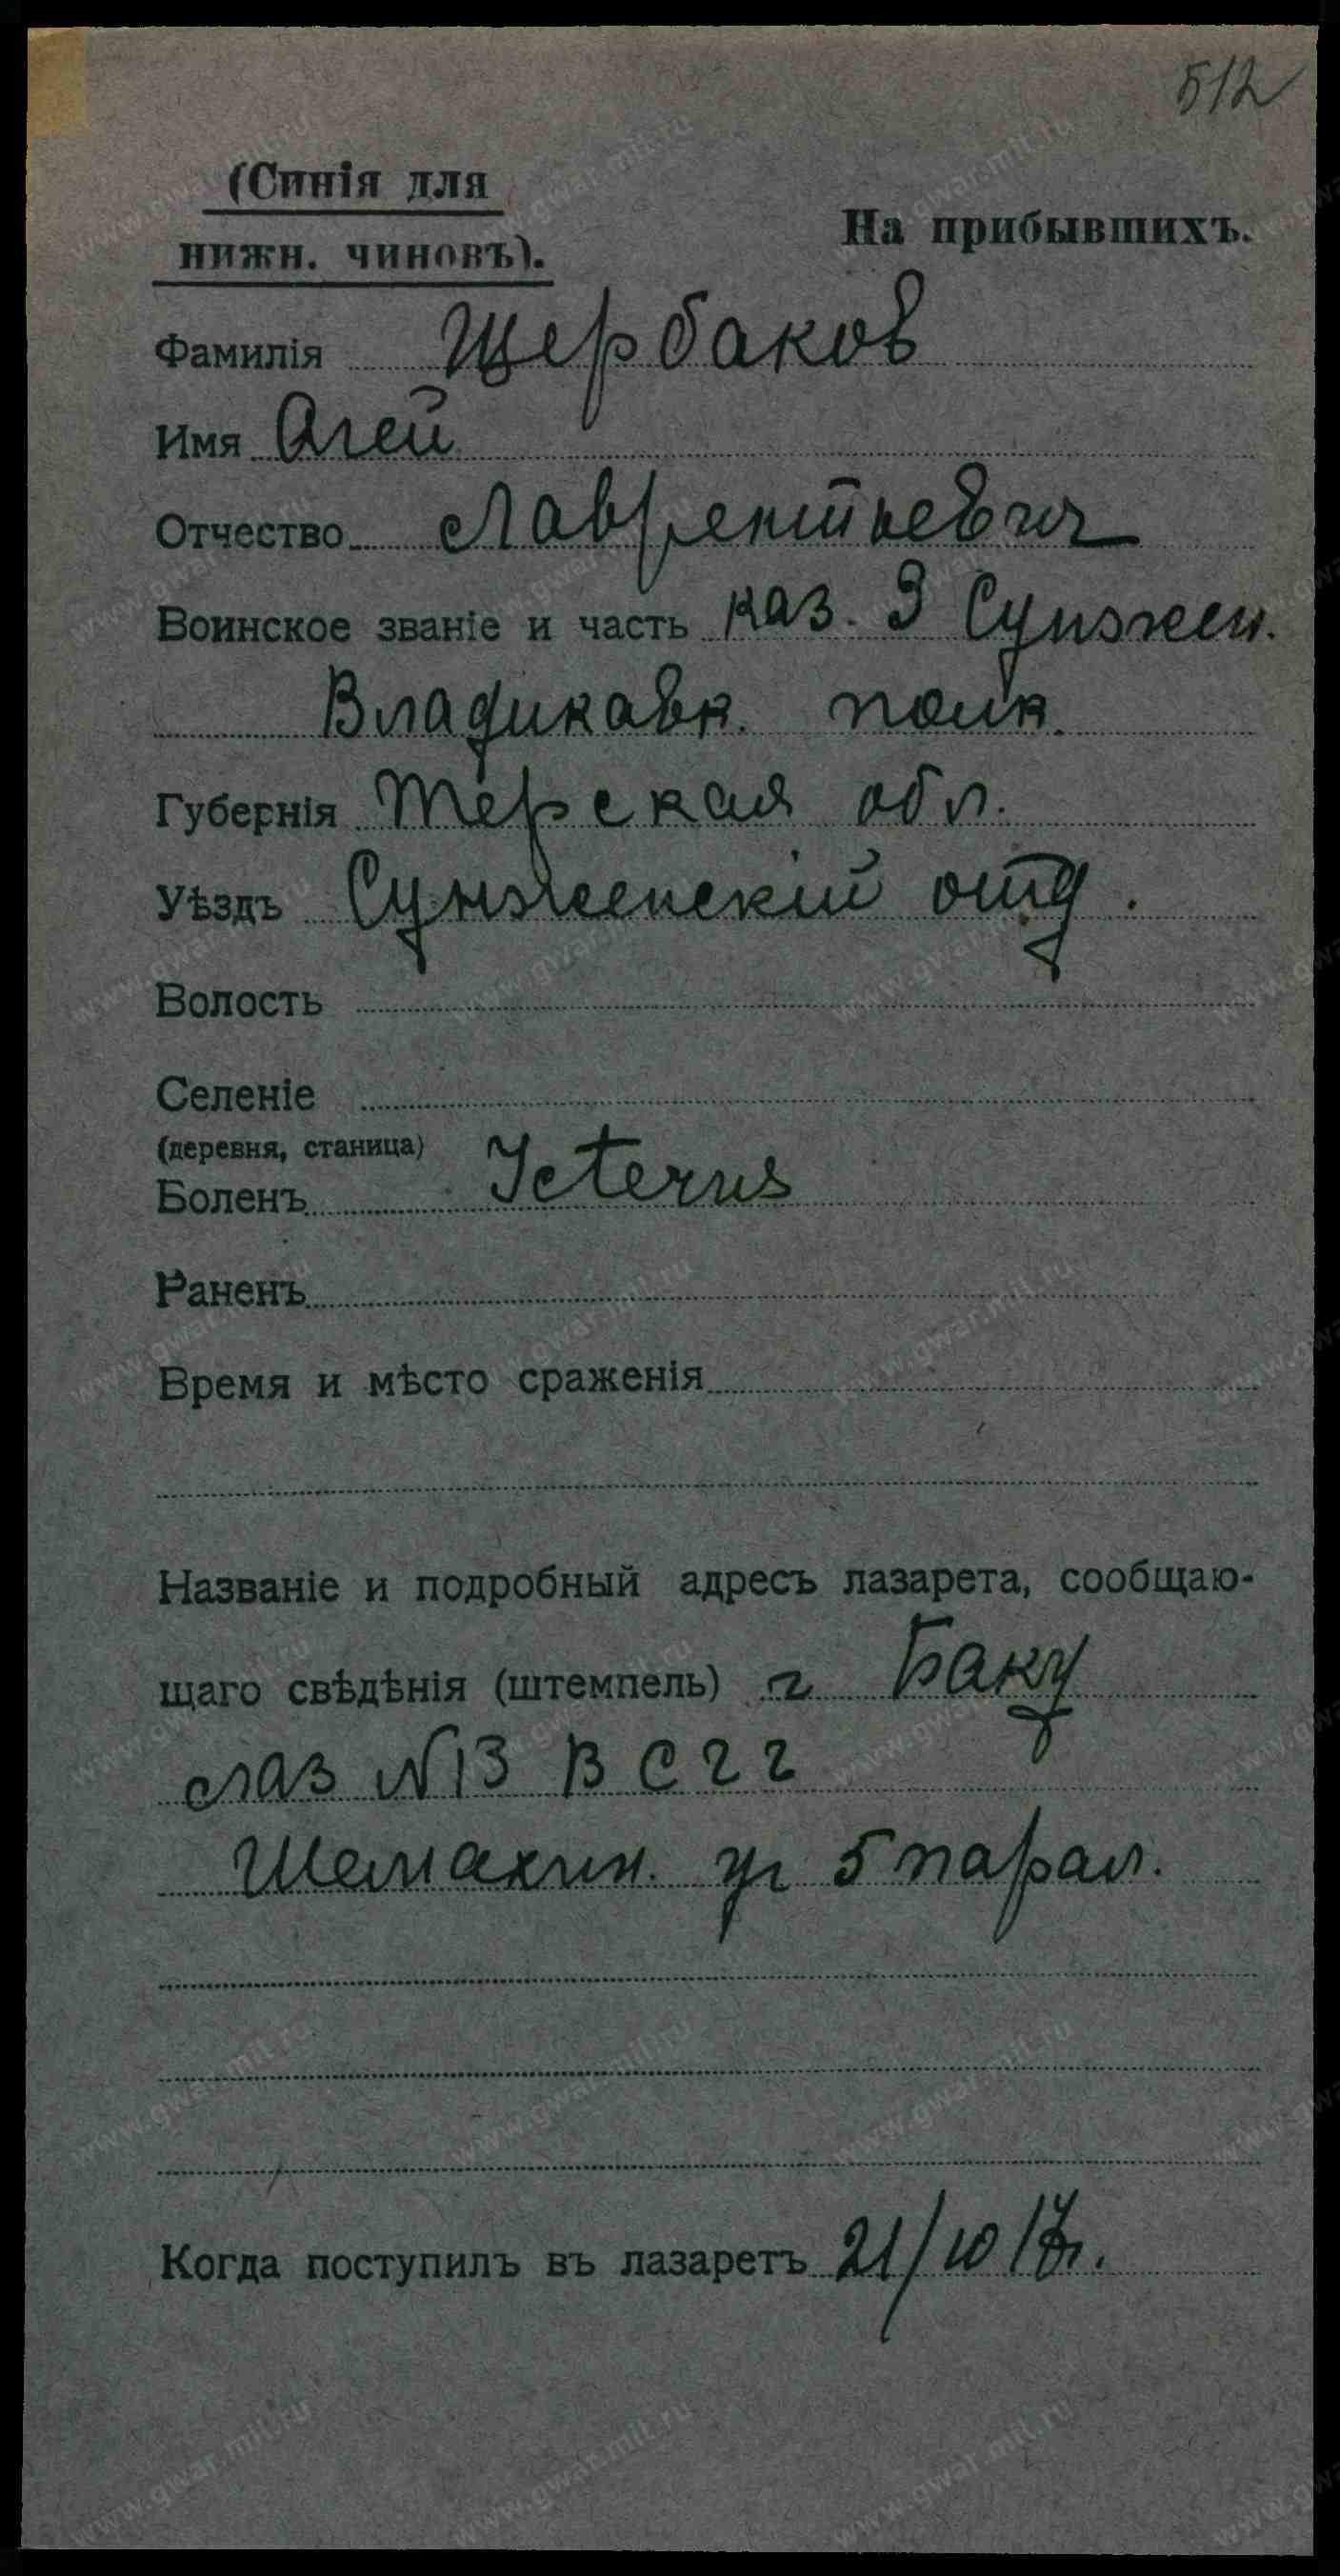 512
(Синія для
нижн. чиновъ).
На прибывшихъ.
Фамилія Щербаков
Имя Агей
Отчество Лаврентьевич
Воинское званіе и часть каз. 3 Сунжен.
Владикавк. полк.
Губернія Терская обл.
Уѣздъ Сунженскій отд.
Волость
Селеніе
(деревня, станица)
Боленъ Icterus
Раненъ
Время и мѣсто сраженія
Названіе и подробный адресъ лазарета, сообщаю-
щаго свѣдѣнія (штемпель) г Баку
лаз №13 В С Г Г
Шемахин. уг 5 парал.
Когда поступилъ въ лазаретъ 21/10 17г.
www.gwar.mil.ru